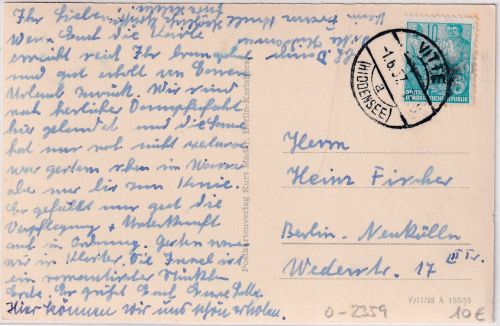 Ihr Lieben!
Wenn Euch die Karte
erreicht seid Ihr
und gut erholt von Eurem
Urlaub zurück. Wir sind
nach herrlicher Dampferfahrt
hier gelandet und die Sonne
hat nur noch nicht
war gestern schon im Wasser
aber nur bis zum Knie.
Es gefällt uns gut die
Verpflegung + Unterkunft
auch in Ordnung. Gestern waren
wir in Kloster. Die Insel ist
ein romantisches Stückchen
Erde. Es grüßt Euch Eure
Hier können wir uns schön erholen.
VITTE
(HIDDENSEE)
a
-1.6.5
DEUTSCHE
DEMOKRATISCHE REPUBLIK
Postkartenverlag Kurt Mader, Berlin-Karlshorst
Herrn
Heinz Fircher
Berlin-Neukölln
Wederstr. 17 III Tr.
V/11/28 A 150/55
0-2359
10€